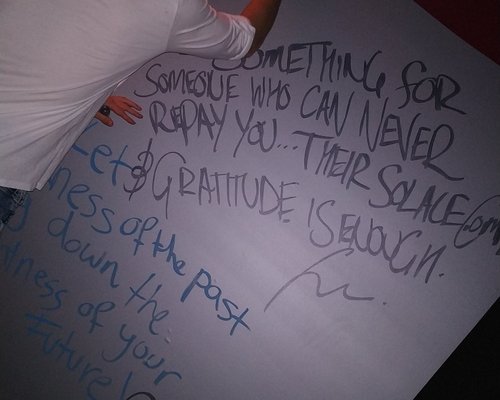 SOMETHING FOR
SOMEONE WHO CAN NEVER
REPAY YOU... THEIR SOLACE
& GRATITUDE IS ENOUGH.
Let
ness of the past
down the
ness of your
Future!